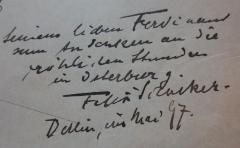 Seinem lieben Ferdinand
zum Andenken an die
fröhlichen Stunden
in
Felix
Berlin, im Mai 97.